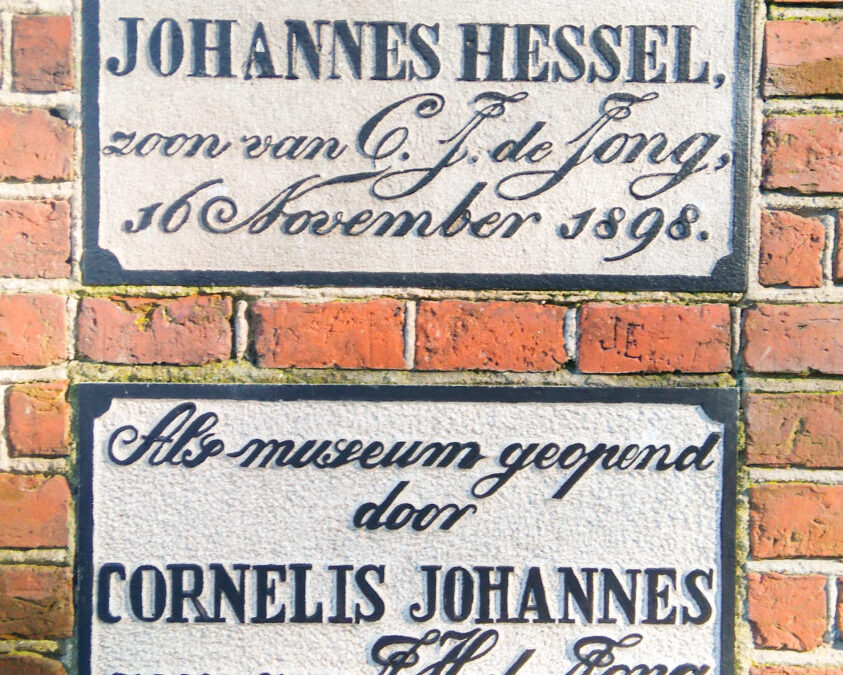 JOHANNES HESSEL,
zoon van C. J. de Jong,
16 November 1898.
JE
Als museum geopend
door
CORNELIS JOHANNES
J.H. de Jong